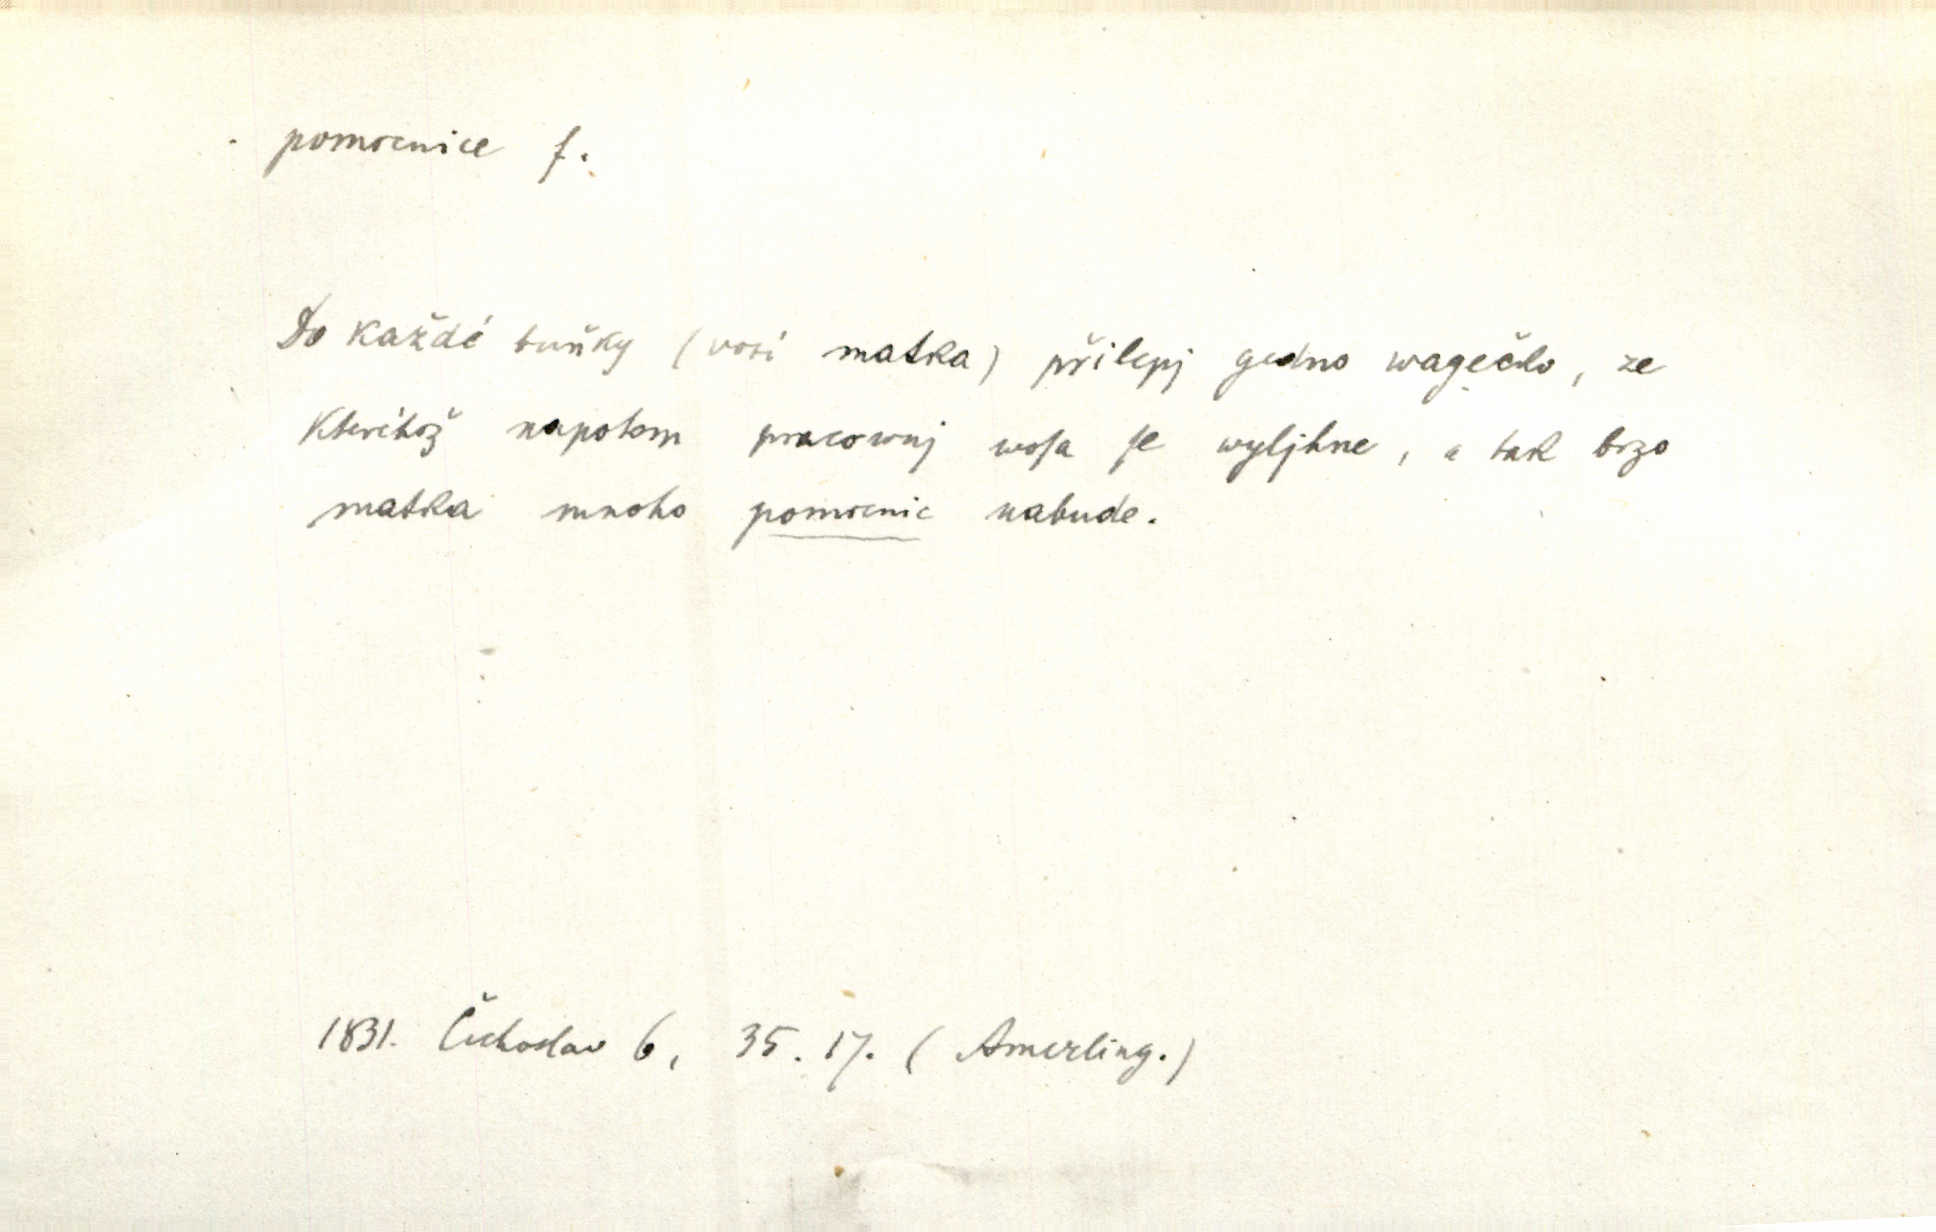 pomocnice f.
Do každé buňky (vosí matka) přilepj gedno wagečko, ze
kteréhož napotom pracownj woſa ſe wyljhne, a tak brzo
matka mnoho pomocnic nabude.
1831. Čechoslav 6, 35. 17. (Amerling.)